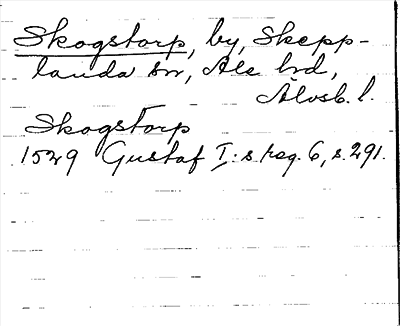 Skogstorp, by, Skepp-
landa sn, Ale hd,
Älvsb. l.
Skogstorp
1529 Gustaf I:s reg. 6, s. 291.